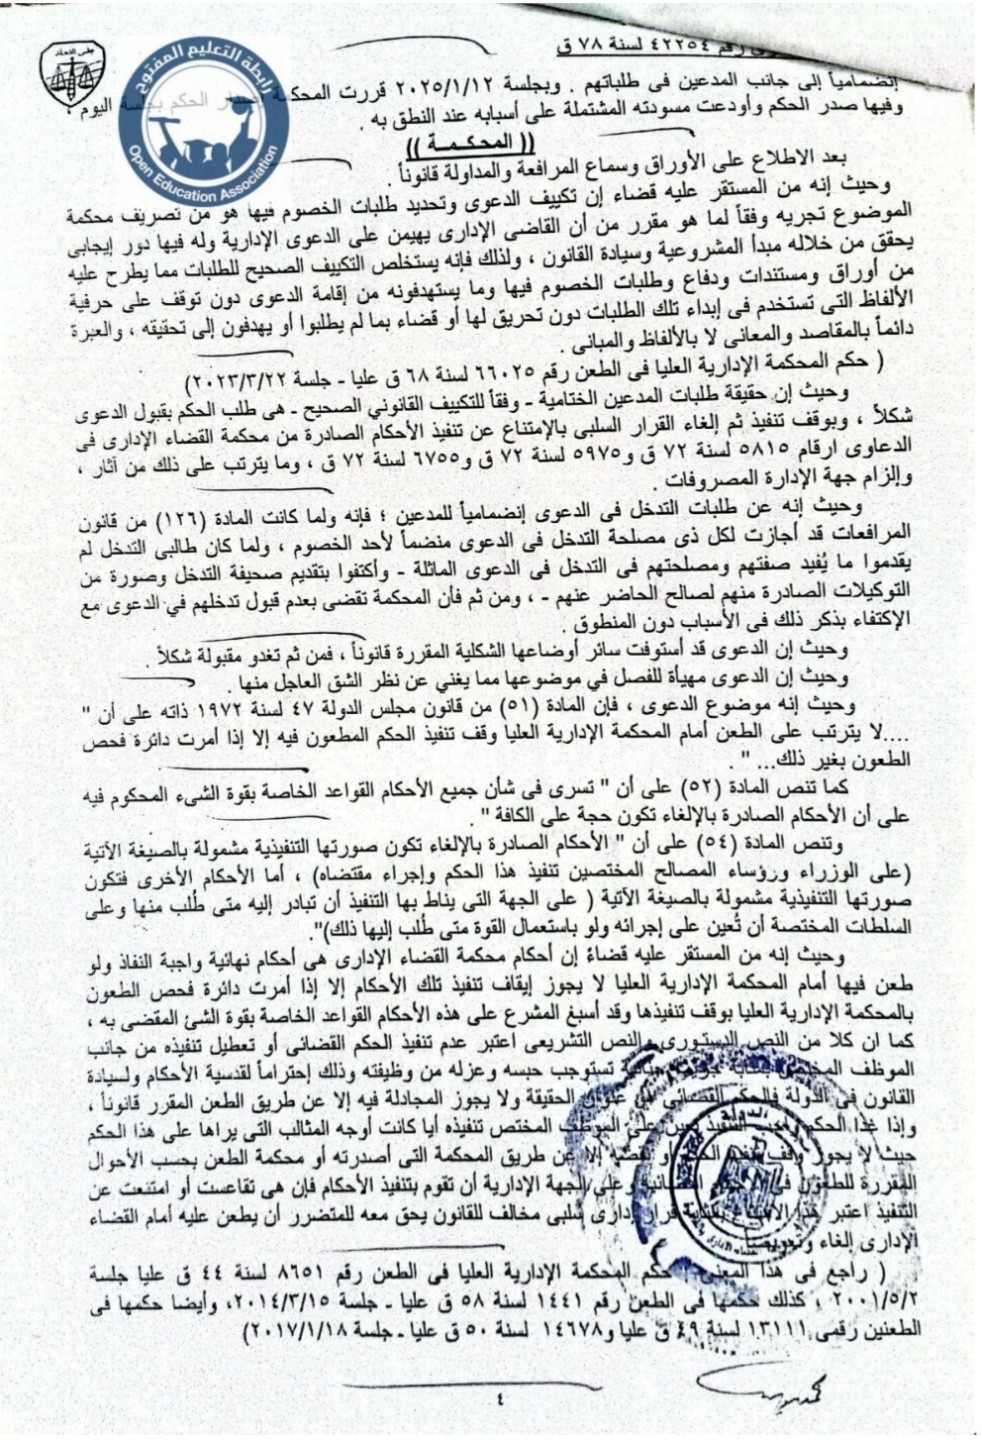 رقم ٤٢٢٥٤ لسنة ٧٨ ق
مجلس الدولة
رابطة التعليم المفتوح
Open Education Association
إنضمامياً إلى جانب المدعين فى طلباتهم . وبجلسة ٢٠٢٥/١/١٢ قررت المحكمة إصدار الحكم بجلسة اليوم ،
وفيها صدر الحكم وأودعت مسودته المشتملة على أسبابه عند النطق به .
(( المحكمــة ))
بعد الاطلاع على الأوراق وسماع المرافعة والمداولة قانوناً .
وحيث إنه من المستقر عليه قضاء إن تكييف الدعوى وتحديد طلبات الخصوم فيها هو من تصريف محكمة
الموضوع تجريه وفقاً لما هو مقرر من أن القاضى الإدارى يهيمن على الدعوى الإدارية وله فيها دور إيجابى
يحقق من خلاله مبدأ المشروعية وسيادة القانون ، ولذلك فإنه يستخلص التكييف الصحيح للطلبات مما يطرح عليه
من أوراق ومستندات ودفاع وطلبات الخصوم فيها وما يستهدفونه من إقامة الدعوى دون توقف على حرفية
الألفاظ التى تستخدم فى إبداء تلك الطلبات دون تحريق لها أو قضاء بما لم يطلبوا أو يهدفون إلى تحقيقه ، والعبرة
دائماً بالمقاصد والمعانى لا بالألفاظ والمبانى .
( حكم المحكمة الإدارية العليا فى الطعن رقم ٦٦٠٢٥ لسنة ٦٨ ق عليا - جلسة ٢٠٢٣/٣/٢٢)
وحيث إن حقيقة طلبات المدعين الختامية - وفقاً للتكييف القانوني الصحيح - هى طلب الحكم بقبول الدعوى
شكلاً ، وبوقف تنفيذ ثم إلغاء القرار السلبى بالإمتناع عن تنفيذ الأحكام الصادرة من محكمة القضاء الإدارى فى
الدعاوى ارقام ٥٨١٥ لسنة ٧٢ ق و٥٩٧٥ لسنة ٧٢ ق و٦٧٥٥ لسنة ٧٢ ق ، وما يترتب على ذلك من آثار ،
وإلزام جهة الإدارة المصروفات .
وحيث إنه عن طلبات التدخل فى الدعوى إنضمامياً للمدعين ؛ فإنه ولما كانت المادة (١٢٦) من قانون
المرافعات قد أجازت لكل ذى مصلحة التدخل فى الدعوى منضماً لأحد الخصوم ، ولما كان طالبى التدخل لم
يقدموا ما يُفيد صفتهم ومصلحتهم فى التدخل فى الدعوى الماثلة - وأكتفوا بتقديم صحيفة التدخل وصورة من
التوكيلات الصادرة منهم لصالح الحاضر عنهم - ، ومن ثم فأن المحكمة تقضى بعدم قبول تدخلهم في الدعوى مع
الإكتفاء بذكر ذلك فى الأسباب دون المنطوق .
وحيث إن الدعوى قد أستوفت سائر أوضاعها الشكلية المقررة قانوناً ، فمن ثم تغدو مقبولة شكلاً .
وحيث إن الدعوى مهيأة للفصل في موضوعها مما يغني عن نظر الشق العاجل منها .
وحيث إنه موضوع الدعوى ، فإن المادة (٥١) من قانون مجلس الدولة ٤٧ لسنة ١٩٧٢ ذاته على أن "
....لا يترتب على الطعن أمام المحكمة الإدارية العليا وقف تنفيذ الحكم المطعون فيه إلا إذا أمرت دائرة فحص
الطعون بغير ذلك... " .
كما تنص المادة (٥٢) على أن " تسرى فى شأن جميع الأحكام القواعد الخاصة بقوة الشىء المحكوم فيه
على أن الأحكام الصادرة بالإلغاء تكون حجة على الكافة " .
وتنص المادة (٥٤) على أن " الأحكام الصادرة بالإلغاء تكون صورتها التنفيذية مشمولة بالصيغة الآتية
(على الوزراء ورؤساء المصالح المختصين تنفيذ هذا الحكم وإجراء مقتضاه) ، أما الأحكام الأخرى فتكون
صورتها التنفيذية مشمولة بالصيغة الآتية ( على الجهة التى يناط بها التنفيذ أن تبادر إليه متى طُلب منها وعلى
السلطات المختصة أن تُعين على إجرائه ولو باستعمال القوة متى طُلب إليها ذلك)".
وحيث إنه من المستقر عليه قضاءً إن أحكام محكمة القضاء الإدارى هى أحكام نهائية واجبة النفاذ ولو
طعن فيها أمام المحكمة الإدارية العليا لا يجوز إيقاف تنفيذ تلك الأحكام إلا إذا أمرت دائرة فحص الطعون
بالمحكمة الإدارية العليا بوقف تنفيذها وقد أسبغ المشرع على هذه الأحكام القواعد الخاصة بقوة الشئ المقضى به ،
كما ان كلا من النص الدستورى والنص التشريعى اعتبر عدم تنفيذ الحكم القضائى أو تعطيل تنفيذه من جانب
الموظف المختص بمثابة جريمة جنائية تستوجب حبسه وعزله من وظيفته وذلك إحتراماً لقدسية الأحكام ولسيادة
القانون فى الدولة فالحكم القضائى هو عنوان الحقيقة ولا يجوز المجادلة فيه إلا عن طريق الطعن المقرر قانوناً ،
وإذا غدا الحكم واجب التنفيذ تعين على الموظف المختص تنفيذه أيا كانت أوجه المثالب التى يراها على هذا الحكم
حيث لا يجوز وقف تنفيذ الحكم و نقضه إلا عن طريق المحكمة التى أصدرته أو محكمة الطعن بحسب الأحوال
المقررة للطعون فى الأحكام القضائية وعلى الجهة الإدارية أن تقوم بتنفيذ الأحكام فإن هى تقاعست أو امتنعت عن
التنفيذ اعتبر هذا الامتناع بمثابة قرار إدارى سلبى مخالف للقانون يحق معه للمتضرر أن يطعن عليه أمام القضاء
الإدارى إلغاء وتعويضاً .
( راجع فى هذا المعنى : حكم المحكمة الإدارية العليا فى الطعن رقم ٨٦٥١ لسنة ٤٤ ق عليا جلسة
٢٠٠١/٥/٢ ، كذلك حكمها فى الطعن رقم ١٤٤١ لسنة ٥٨ ق عليا - جلسة ٢٠١٤/٣/١٥، وأيضا حكمها فى
الطعنين رقمى ١٣١١١ لسنة ٤٩ ق عليا و١٤٦٧٨ لسنة ٥٠ ق عليا - جلسة ٢٠١٧/١/١٨)
٤